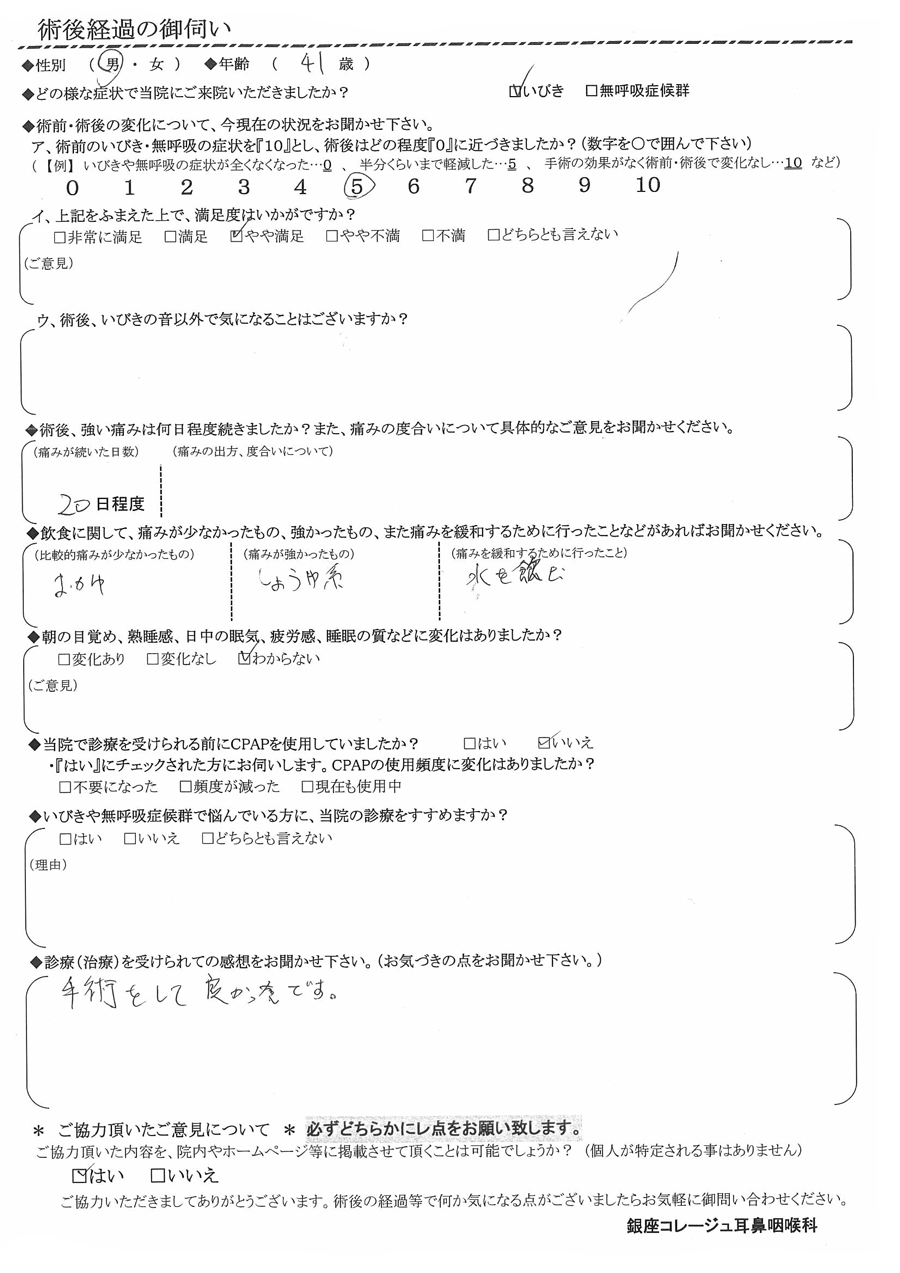 術後経過の御伺い
◆性別 （ 男 ・ 女 ） ◆年齢 （ 41 歳 ）
◆どの様な症状で当院にご来院いただきましたか？ ☑いびき □無呼吸症候群
◆術前・術後の変化について、今現在の状況をお聞かせ下さい。
ア、術前のいびき・無呼吸の症状を『10』とし、術後はどの程度『0』に近づきましたか？（数字を〇で囲んで下さい）
（【例】 いびきや無呼吸の症状が全くなくなった…0 、 半分くらいまで軽減した…5 、 手術の効果がなく術前・術後で変化なし…10 など）
0 1 2 3 4 5 6 7 8 9 10
イ、上記をふまえた上で、満足度はいかがですか？
□非常に満足 □満足 ☑やや満足 □やや不満 □不満 □どちらとも言えない
（ご意見）
ウ、術後、いびきの音以外で気になることはございますか？
◆術後、強い痛みは何日程度続きましたか？また、痛みの度合いについて具体的なご意見をお聞かせください。
（痛みが続いた日数） （痛みの出方、度合いについて）
20 日程度
◆飲食に関して、痛みが少なかったもの、強かったもの、また痛みを緩和するために行ったことなどがあればお聞かせください。
（比較的痛みが少なかったもの） （痛みが強かったもの） （痛みを緩和するために行ったこと）
おかゆ しょうゆ系 水を飲む
◆朝の目覚め、熟睡感、日中の眠気、疲労感、睡眠の質などに変化はありましたか？
□変化あり □変化なし ☑わからない
（ご意見）
◆当院で診療を受けられる前にCPAPを使用していましたか？ □はい ☑いいえ
・『はい』にチェックされた方にお伺いします。CPAPの使用頻度に変化はありましたか？
□不要になった □頻度が減った □現在も使用中
◆いびきや無呼吸症候群で悩んでいる方に、当院の診療をすすめますか？
□はい □いいえ □どちらとも言えない
（理由）
◆診療（治療）を受けられての感想をお聞かせ下さい。（お気づきの点をお聞かせ下さい。）
手術をして良かったです。
＊ ご協力頂いたご意見について ＊ 必ずどちらかにレ点をお願い致します。
ご協力頂いた内容を、院内やホームページ等に掲載させて頂くことは可能でしょうか？ （個人が特定される事はありません）
☑はい □いいえ
ご協力いただきましてありがとうございます。術後の経過等で何か気になる点がございましたらお気軽に御問い合わせください。
銀座コレージュ耳鼻咽喉科